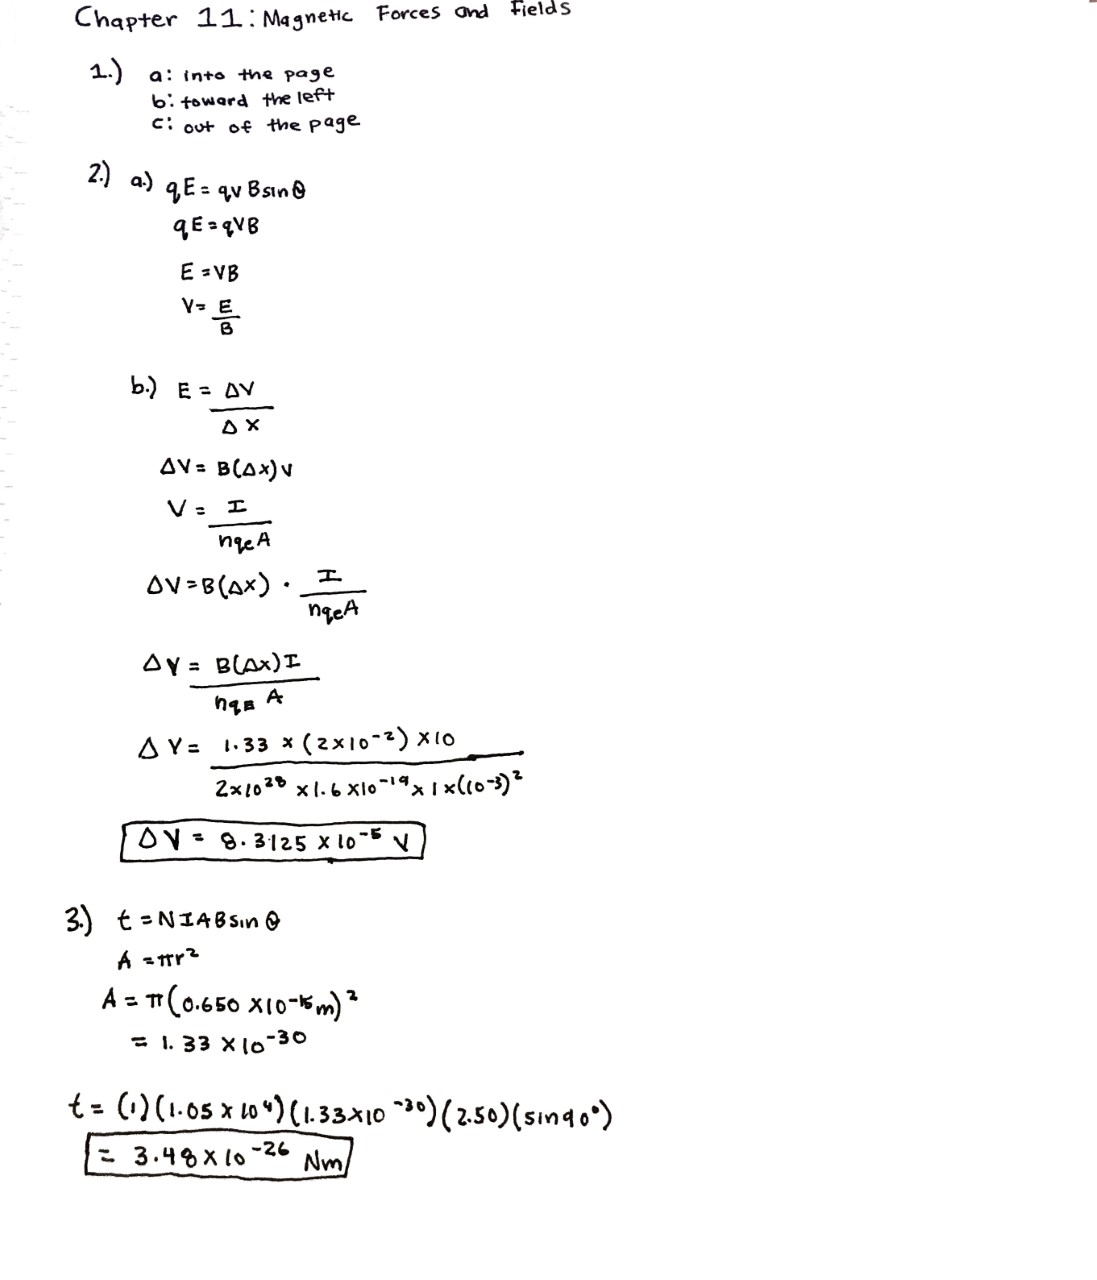 Chapter 11: Magnetic Forces and Fields
1.) a: into the page
b: toward the left
c: out of the page
2.) a.) qE = qvBsinθ
qE = qVB
E = VB
V = E/B
b.) E = ΔV/ΔX
ΔV = B(Δx)v
V = I/nqeA
ΔV = B(Δx) · I/nqeA
ΔV = B(Δx)I/nqE A
ΔV = 1.33 x (2x10⁻²) x10/2x10²⁸ x1.6 x10⁻¹⁹ x 1 x(10⁻³)²
ΔV = 8.3125 x 10⁻⁵ V
3.) t = NIABsinθ
A = πr²
A = π(0.650 x10⁻¹⁵m)²
= 1.33 x10⁻³⁰
t = (1)(1.05 x 10⁴)(1.33x10⁻³⁰)(2.50)(sin90°)
= 3.48 x 10⁻²⁶ Nm